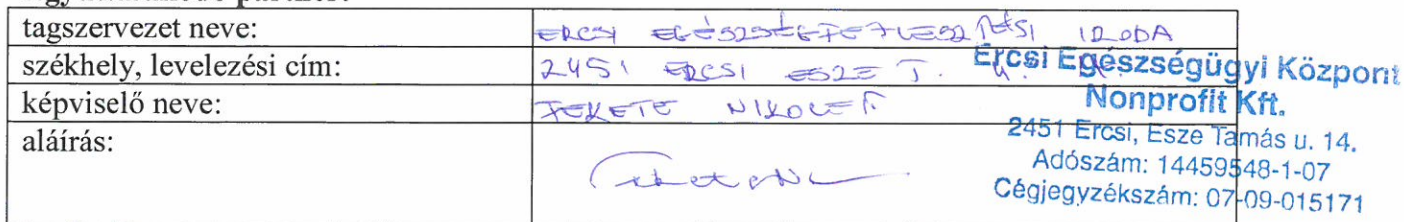 tagszervezet neve: ERCSI EGÉSZSÉGFEJLESZTÉSI IRODA
székhely, levelezési cím: 2451 ERCSI ESZE T. U.
képviselő neve: FEKETE NIKOLETT
aláírás:
Ercsi Egészségügyi Központ
Nonprofit Kft.
2451 Ercsi, Esze Tamás u. 14.
Adószám: 14459548-1-07
Cégjegyzékszám: 07-09-015171